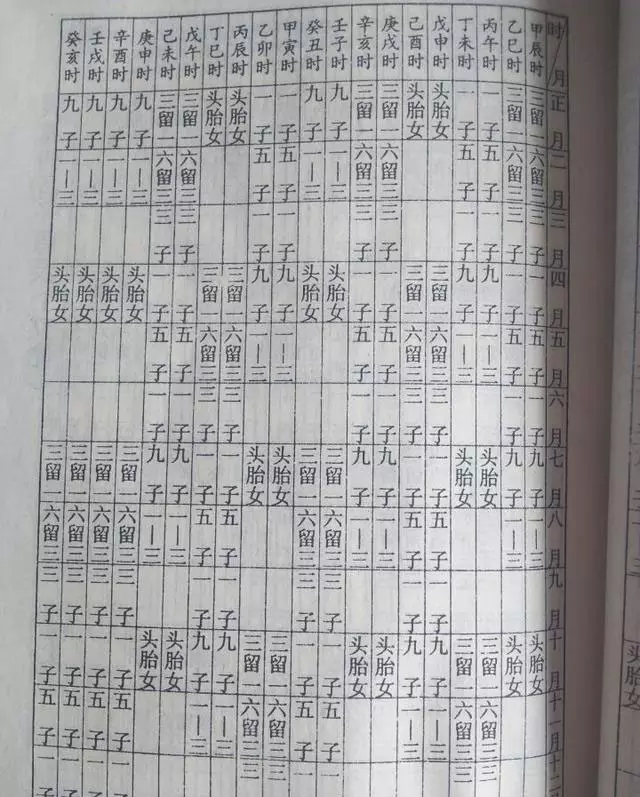 时/月 正月 二月 三月 四月 五月 六月 七月 八月 九月 十月 十一月 十二
甲辰时 三留一 六留三 三子 一子 五子 一子 九子 一—三 头胎女
乙巳时 三留一 六留三 三子 一子 五子 一子 九子 一—三 头胎女
丙午时 一子 五子 一子 九子 一—三 头胎女 三留一 六留三 三
丁未时 一子 五子 一子 九子 一—三 头胎女 三留一 六留三 三
戊申时 头胎女 三留一 六留三 三子 一子 五子 一子 九子 一—三
己酉时 头胎女 三留一 六留三 三子 一子 五子 一子 九子 一—三
庚戌时 三留一 六留三 三子 一子 五子 一子 九子 一—三 头胎女
辛亥时 三留一 六留三 三子 一子 五子 一子 九子 一—三 头胎女
壬子时 九子 一—三 头胎女 三留一 六留三 三子 一子 五子 一
癸丑时 九子 一—三 头胎女 三留一 六留三 三子 一子 五子 一
甲寅时 一子 五子 一子 九子 一—三 头胎女 三留一 六留三 三
乙卯时 一子 五子 一子 九子 一—三 头胎女 三留一 六留三 三
丙辰时 头胎女 三留一 六留三 三子 一子 五子 一子 九子 一—三
丁巳时 头胎女 三留一 六留三 三子 一子 五子 一子 九子 一—三
戊午时 三留一 六留三 三子 一子 五子 一子 九子 一—三 头胎女
己未时 三留一 六留三 三子 一子 五子 一子 九子 一—三 头胎女
庚申时 九子 一—三 头胎女 三留一 六留三 三子 一子 五子 一
辛酉时 九子 一—三 头胎女 三留一 六留三 三子 一子 五子 一
壬戌时 九子 一—三 头胎女 三留一 六留三 三子 一子 五子 一
癸亥时 九子 一—三 头胎女 三留一 六留三 三子 一子 五子 一
头胎女